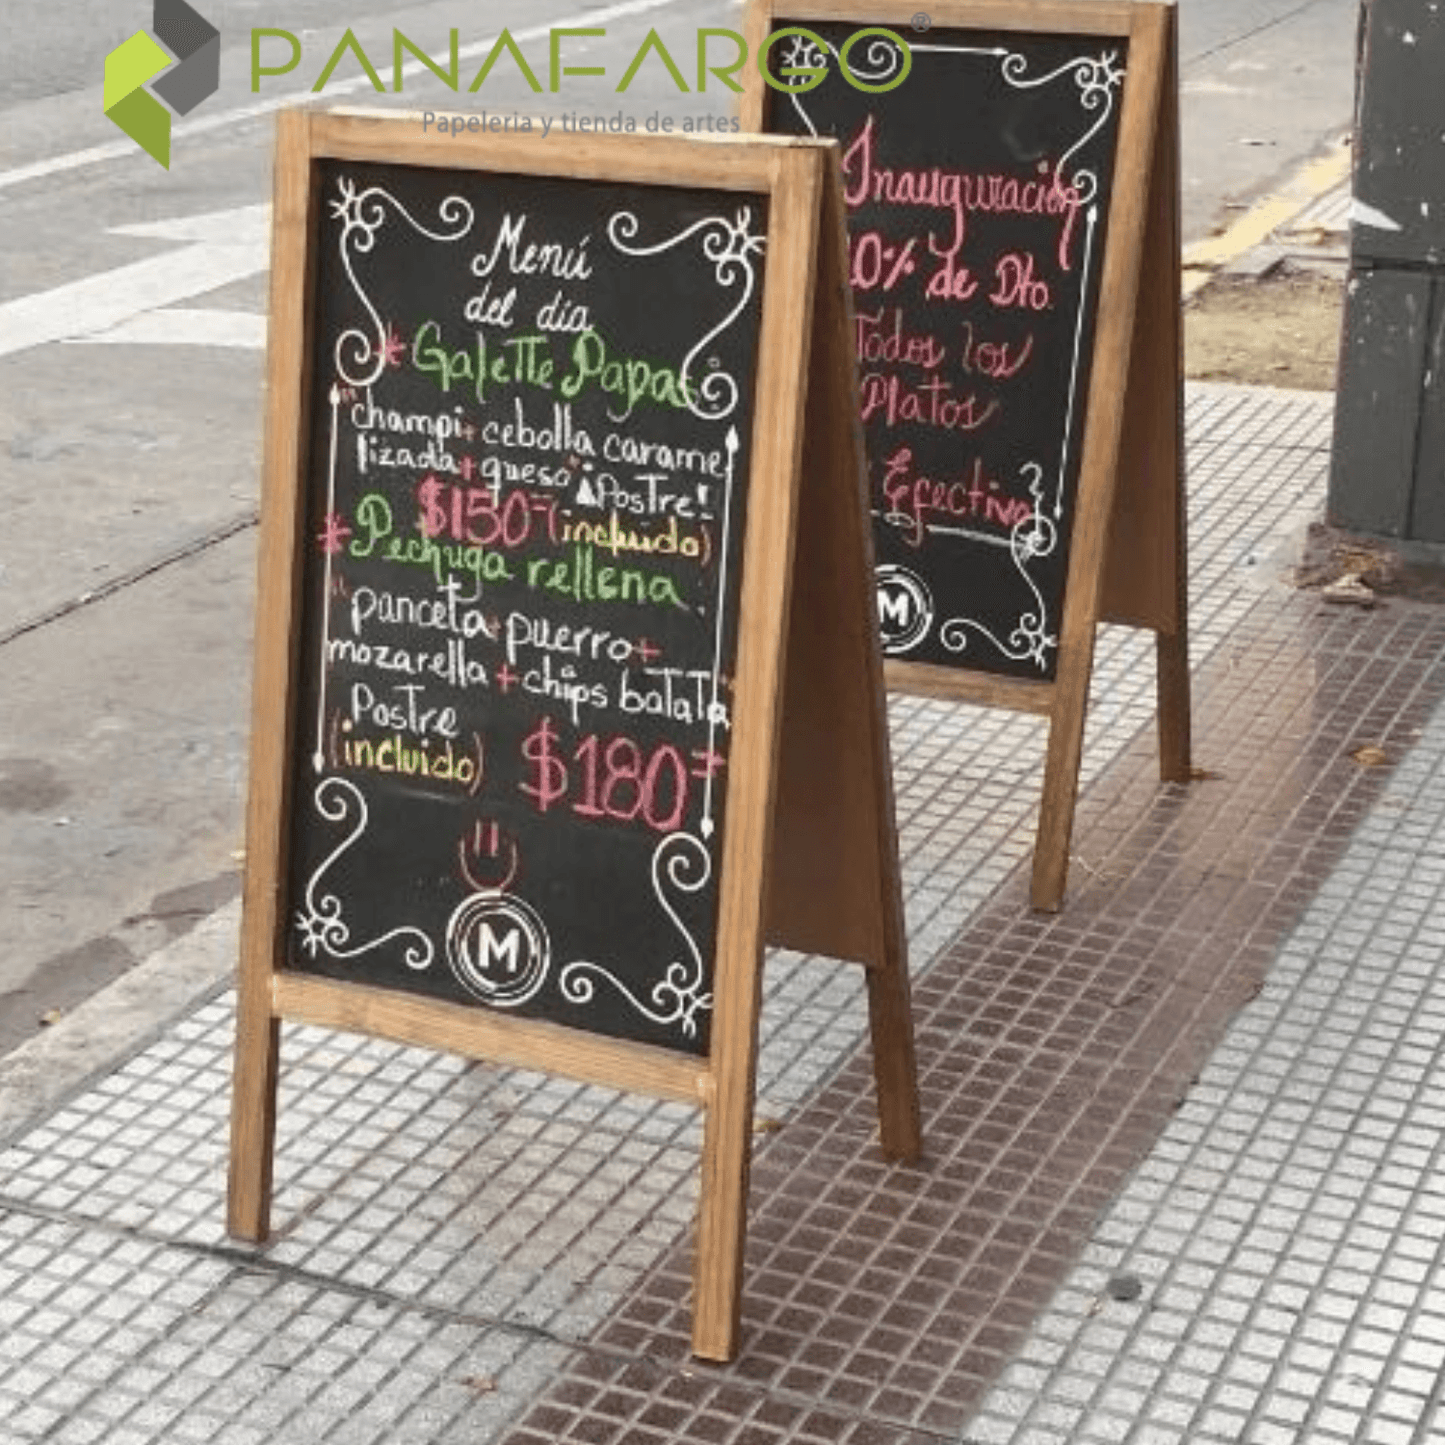 PANAFARGO®
Papeleria y tienda de artes
Menú
del día
* Galette Papas
"champi+cebolla carame
lizada+queso" ¡Postre!
$150- (incluido)
* Pechuga rellena
"panceta+puerro+
mozarella+chips batata"
Postre
(incluido) $180-
M
Inauguración
0% de Dto.
Todos los
Platos
Efectivo
M